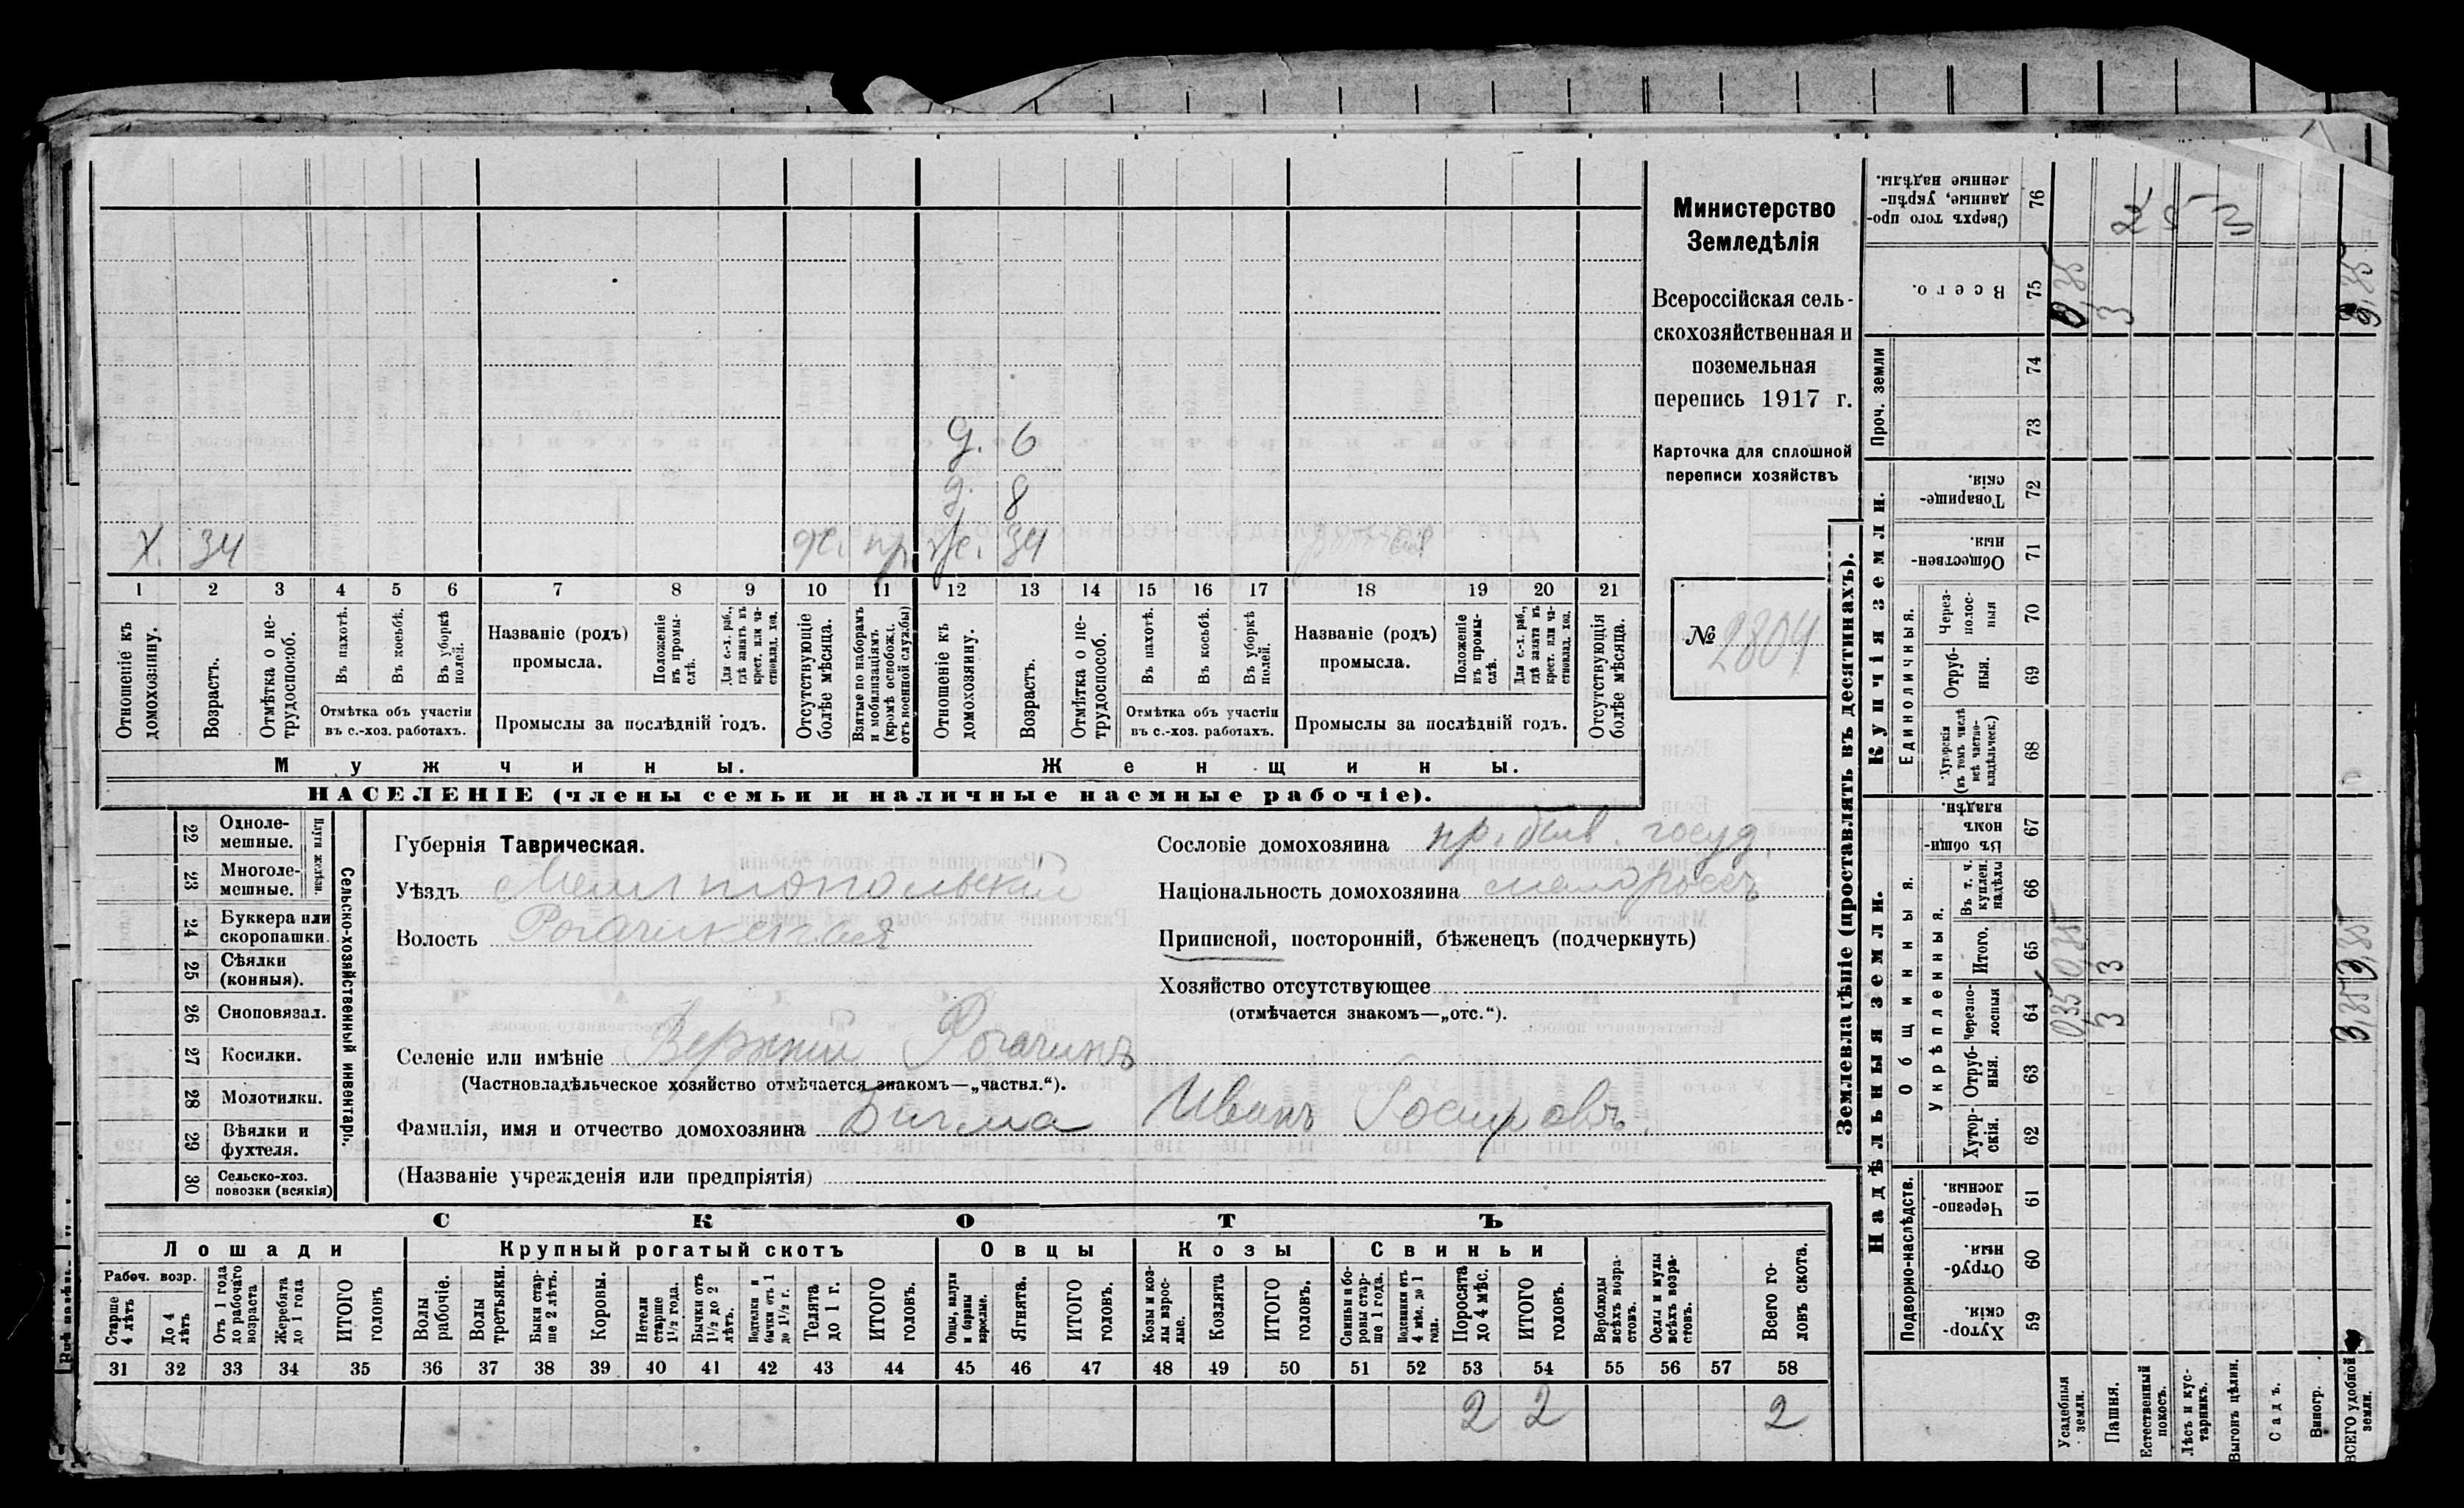 Министерство
Земледѣлія
Всероссійская сель-
скохозяйственная и
поземельная
перепись 1917 г.
Карточка для сплошной
переписи хозяйствъ
№ 2804
д. 6
д. 8
Х. 34 ж. 34
1 2 3 4 5 6 7 8 9 10 11 12 13 14 15 16 17 18 19 20 21
Отношеніе къ домохозяину.
Возрастъ.
Отмѣтка о не-трудоспособ.
Въ пахотѣ.
Въ косьбѣ.
Въ уборкѣ полей.
Отмѣтка объ участіи
въ с.-хоз. работахъ.
Названіе (родъ)
промысла.
Положеніе въ промы-слѣ.
Для с.-х. раб., гдѣ занятъ въ крест. или ча-стновлад. хоз.
Промыслы за послѣдній годъ.
Отсутствующіе болѣе мѣсяца.
Взятые по наборамъ и мобилизаціямъ (кромѣ освобожд. отъ военной службы)
Отношеніе къ домохозяину.
Возрастъ.
Отмѣтка о не-трудоспособ.
Въ пахотѣ.
Въ косьбѣ.
Въ уборкѣ полей.
Отмѣтка объ участіи
въ с.-хоз. работахъ.
Названіе (родъ)
промысла.
Положеніе въ промы-слѣ.
Для с.-х. раб., гдѣ занята въ крест. или ча-стновлад. хоз.
Промыслы за послѣдній годъ.
Отсутствующія болѣе мѣсяца.
Мужчины. Женщины.
НАСЕЛЕНІЕ (члены семьи и наличные наемные рабочіе).
Сельско-хозяйственный инвентарь.
22 Одноле-мешные.
23 Многоле-мешные.
24 Буккера или скоропашки.
25 Сѣялки (конныя).
26 Сноповязал.
27 Косилки.
28 Молотилки.
29 Вѣялки и фухтеля.
30 Сельско-хоз. повозки (всякія)
Губернія Таврическая.
Уѣздъ Мелитопольскій
Волость Рогачикская
Селеніе или имѣніе Верхній Рогачикъ
(Частновладѣльческое хозяйство отмѣчается знакомъ—„частвл.“).
Фамилія, имя и отчество домохозяина Бигма Иванъ
(Названіе учрежденія или предпріятія)
Сословіе домохозяина пр. быв. госуд.
Національность домохозяина малороссъ
Приписной, посторонній, бѣженецъ (подчеркнуть)
Хозяйство отсутствующее
(отмѣчается знакомъ—„отс.“).
СКОТЪ
Лошади Крупный рогатый скотъ Овцы Козы Свиньи
Рабоч. возр.
Старше 4 лѣтъ
До 4 лѣтъ
Отъ 1 года до рабочаго возраста
Жеребята до 1 года
ИТОГО головъ
Волы рабочіе.
Волы третьяки.
Быки стар-ше 2 лѣтъ.
Коровы.
Нетели старше 1½ года.
Бычки отъ 1½ до 2 лѣтъ.
Подтелки и бычки отъ 1 до 1½ г.
Телята до 1 г.
ИТОГО головъ.
Овцы, валухи и бараны взрослые.
Ягнята.
ИТОГО головъ.
Козы и коз-лы взрос-лые.
Козлята
ИТОГО головъ.
Свиньи и бо-ровы стар-ше 1 года.
Подсвинки отъ 4 мѣс. до 1 года.
Поросята до 4 мѣс.
ИТОГО головъ.
Верблюды всѣхъ возра-стовъ.
Ослы и мулы всѣхъ возра-стовъ.
Всего го-ловъ скота.
31 32 33 34 35 36 37 38 39 40 41 42 43 44 45 46 47 48 49 50 51 52 53 54 55 56 57 58
2 2 2
Землевладѣніе (проставлять въ десятинахъ).
Надѣльныя земли. Купчія земли. Проч. земли
Подворно-наслѣдств.
Общинныя.
Укрѣпленныя.
Единоличныя.
59 Хутор-скія.
60 Отруб-ныя.
61 Черезпо-лосныя.
62 Хутор-скія.
63 Отруб-ныя.
64 Черезпо-лосныя
65 Итого.
66 Въ т. ч. куплен. надѣлы
67 Въ общи-номъ владѣн.
68 Хуторскія (въ томъ числѣ всѣ частно-владѣльческ.)
69 Отруб-ныя.
70 Через-полос-ныя
71 Обществен-ныя.
72 Товарище-скія.
73
74
75 Всего.
76 Сверхъ того про-данные, укрѣп-ленные надѣлы.
Усадебныя земли. 0,35 0,35 0,35
Пашня. 3 3 3
Естественный покосъ.
Лѣсъ и кус-тарникъ.
Выгонъ цѣлин.
Садъ.
Виногр.
ВСЕГО удобной земли. 3,35 3,35 3,35